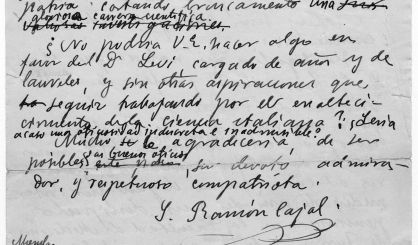 patria cortando bruscamente una
gloriosa carrera científica.
¿No podría V.E. hacer algo en
favor del Dr. Levi cargado de años y de
laureles, y sin otras aspiraciones que
seguir trabajando por el enalteci-
cimiento de la ciencia italiana? ¿Sería
acaso una oficiosidad indiscreta e inadmisible?
Mucho le agradecería de ser
posibles sus buenos oficios
su devoto admira-
dor, y respetuoso compatriota.
S. Ramón Cajal.